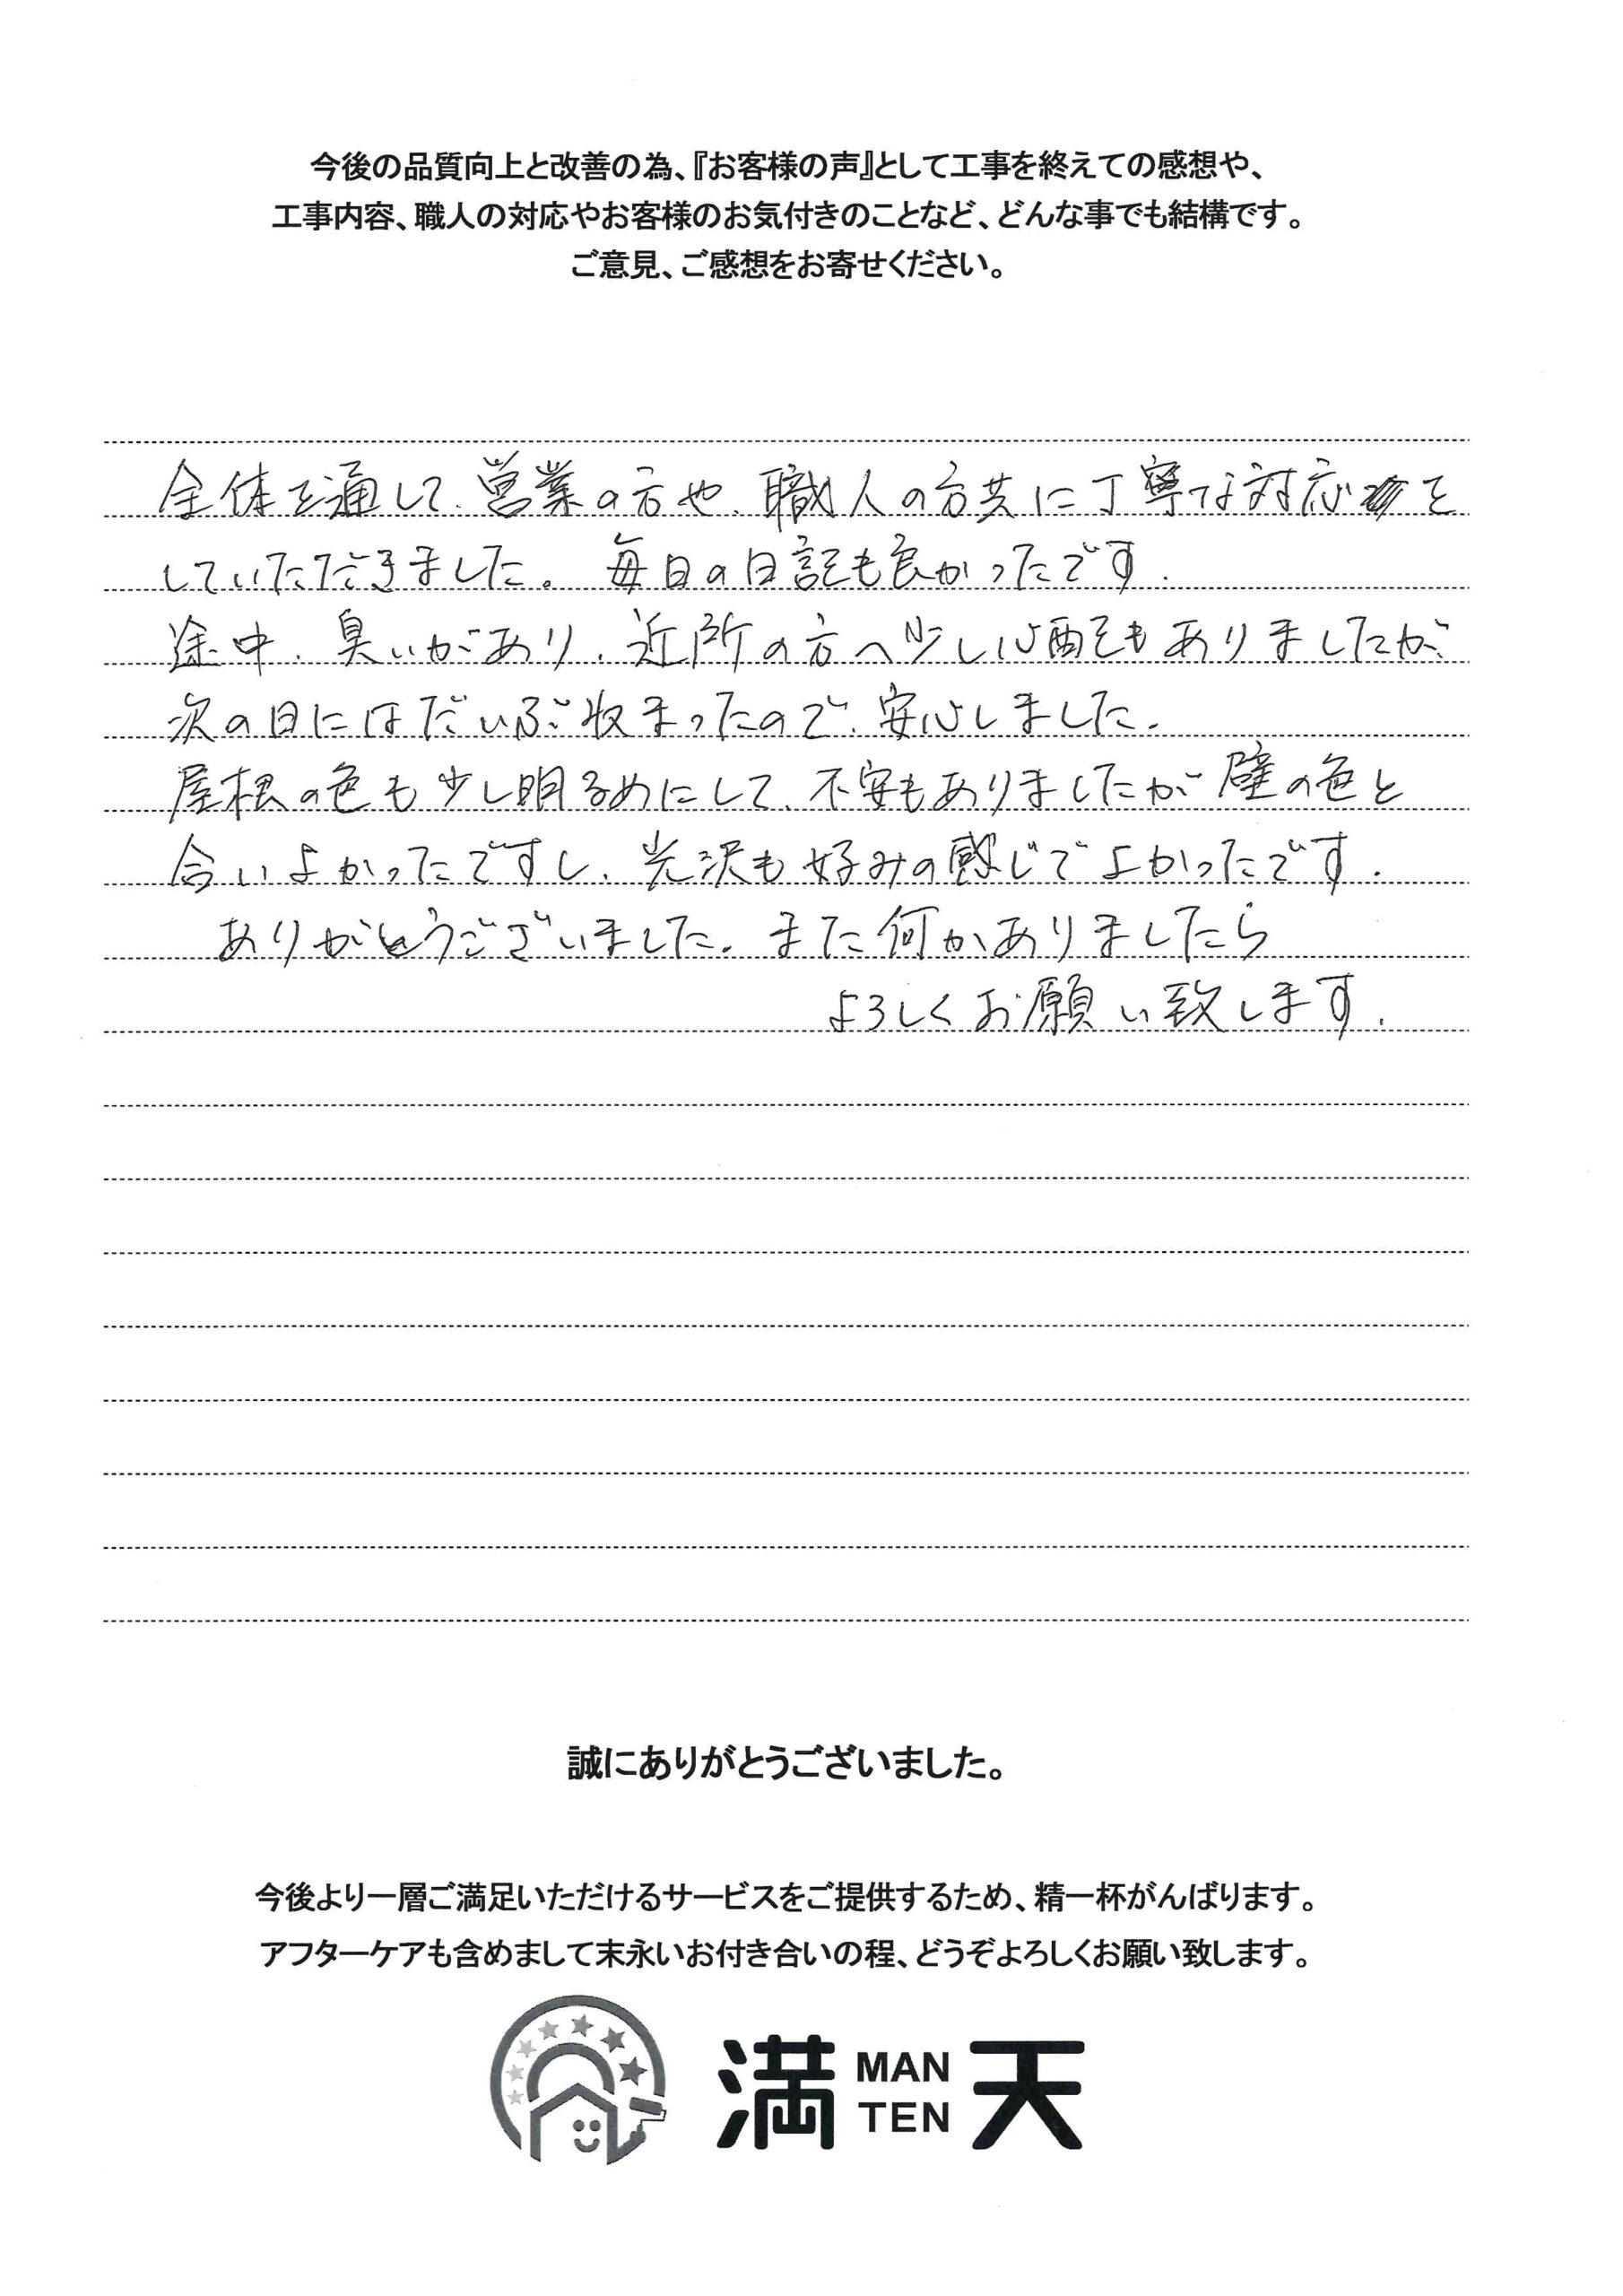 今後の品質向上と改善の為、『お客様の声』として工事を終えての感想や、
工事内容、職人の対応やお客様のお気付きのことなど、どんな事でも結構です。
ご意見、ご感想をお寄せください。
全体を通して、営業の方や、職人の方共に丁寧な対応を
していただきました。毎日の日記も良かったです.
途中、臭いがあり、近所の方へ少し心配をもありましたが、
次の日にはだいぶ収まったので、安心しました.
屋根の色も少し明るめにして、不安もありましたが壁の色と
合いよかったですし、光沢も好みの感じでよかったです.
ありがとうございました。また何かありましたら
よろしくお願い致します.
誠にありがとうございました。
今後より一層ご満足いただけるサービスをご提供するため、精一杯がんばります。
アフターケアも含めまして末永いお付き合いの程、どうぞよろしくお願い致します。
満 MAN TEN 天